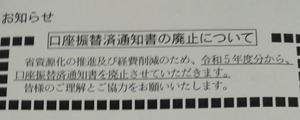 お知らせ
口座振替済通知書の廃止について
省資源化の推進及び経費削減のため、令和5年度分から、
口座振替済通知書を廃止させていただきます。
皆様のご理解とご協力をお願いいたします。